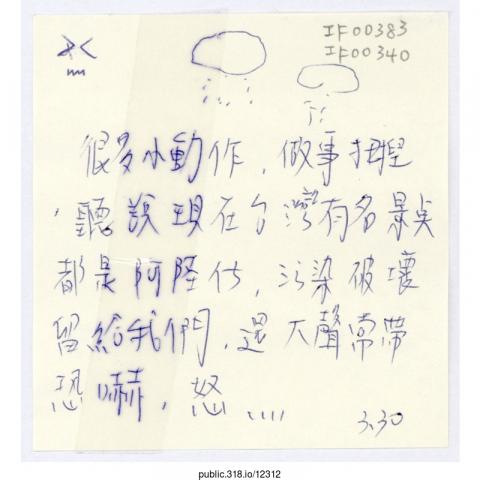 IF00383
IF00340
很多小動作，做事扭捏
，聽說現在台灣有名景点
都是阿陸仔，污染破壞
留給我們，還大聲常帶
恐嚇，怒....
3.30
public.318.io/12312